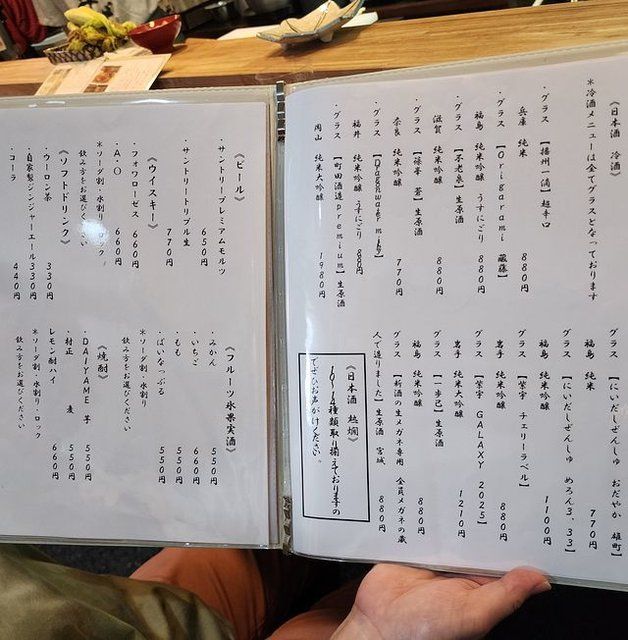 《日本酒 冷酒》
＊冷酒メニューは全てグラスとなっております
・グラス 【播州一滴】超辛口
兵庫 純米 880円
・グラス 【Origarami 藏藤】
福島 純米吟醸 うすにごり 880円
・グラス 【不老泉】生原酒
滋賀 純米吟醸 880円
・グラス 【篠峯 蒼】生原酒
奈良 純米吟醸 770円
・グラス 【Dragon
福井 純米吟醸 うすにごり 880円
・グラス 【町田酒造premium】生原酒
岡山 純米大吟醸 1980円
グラス 【にいだしぜんしゅ おだやか 雄町】
福島 純米 770円
グラス 【にいだしぜんしゅ めろん3.33】
福島 純米吟醸 1100円
グラス 【紫宙 チェリーラベル】
岩手 純米吟醸 880円
グラス 【紫宙 GALAXY 2025】
岩手 純米大吟醸 1210円
グラス 【一歩己】生原酒
福島 純米吟醸 880円
グラス 【新酒の生メガネ専用 全員メガネの蔵
人で造りました】生原酒 宮城 880円
《日本酒 熱燗》
10〜14種類取り揃えておりますの
でぜひお声がけください。
《ビール》
・サントリープレミアムモルツ
650円
・サントリートリプル生
770円
《ウイスキー》
・フォアローゼス 660円
・A.O 660円
＊ソーダ割・水割り・ロック
飲み方をお選びください
《ソフトドリンク》
・ウーロン茶 330円
・自家製ジンジャーエール 330円
・コーラ 440円
《フルーツ氷果実酒》
・みかん 550円
・いちご 660円
・もも 550円
・ぱいなっぷる 550円
＊ソーダ割・水割り
飲み方をお選びください
《焼酎》
・DAIYAME 芋 550円
・村正 麦 550円
レモン酎ハイ 660円
＊ソーダ割・水割り・ロック
飲み方をお選びください